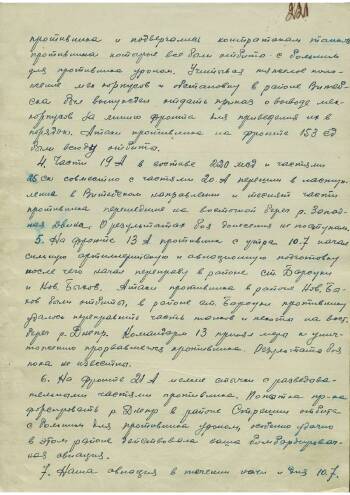 221
противника и подвергались контратакам танков
противника которые все были отбиты с большим
для противника уроном. Учитывая тяжелое поло-
жение мехкорпусов и обстановку в районе Витеб-
ска был вынужден отдать приказ о выводе мех-
корпусов за линию фронта для приведения их в
порядок. Атаки противника на фронте 153 СД
были всюду отбиты.
4. Части 19А в составе 220 мсд и частями
25 ск совместно с частями 20А перешли в наступ-
ление в Витебском направлении и теснят части
противника перешедшие на восточный берег р. Запад-
ная Двина. О результатах боя донесения не поступили.
5. На фронте 13 А противник с утра 10.7 начал
сильную артиллерийскую и авиационную подготовку
после чего начал переправу в районе ст. Барсуки
и Нов. Быхов. Атаки противника в районе Нов. Бы-
хов были отбиты, в районе ст. Барсуки противнику
удалось переправить часть танков и пехоты на вост.
берег р. Днепр. Командарм 13 принял меры к унич-
тожению прорвавшегося противника. Результаты боя
пока не известны.
6. На фронте 21 А мелкие стычки с разведова-
тельными частями противника. Попытка пр-ка
форсировать р. Днепр в районе Стрешин отбита
с большим для противника уроном, особенно удачно
в этом районе действовала наша бомбардировоч-
ная авиация.
7. Наша авиация в течении ночи и дня 10.7.